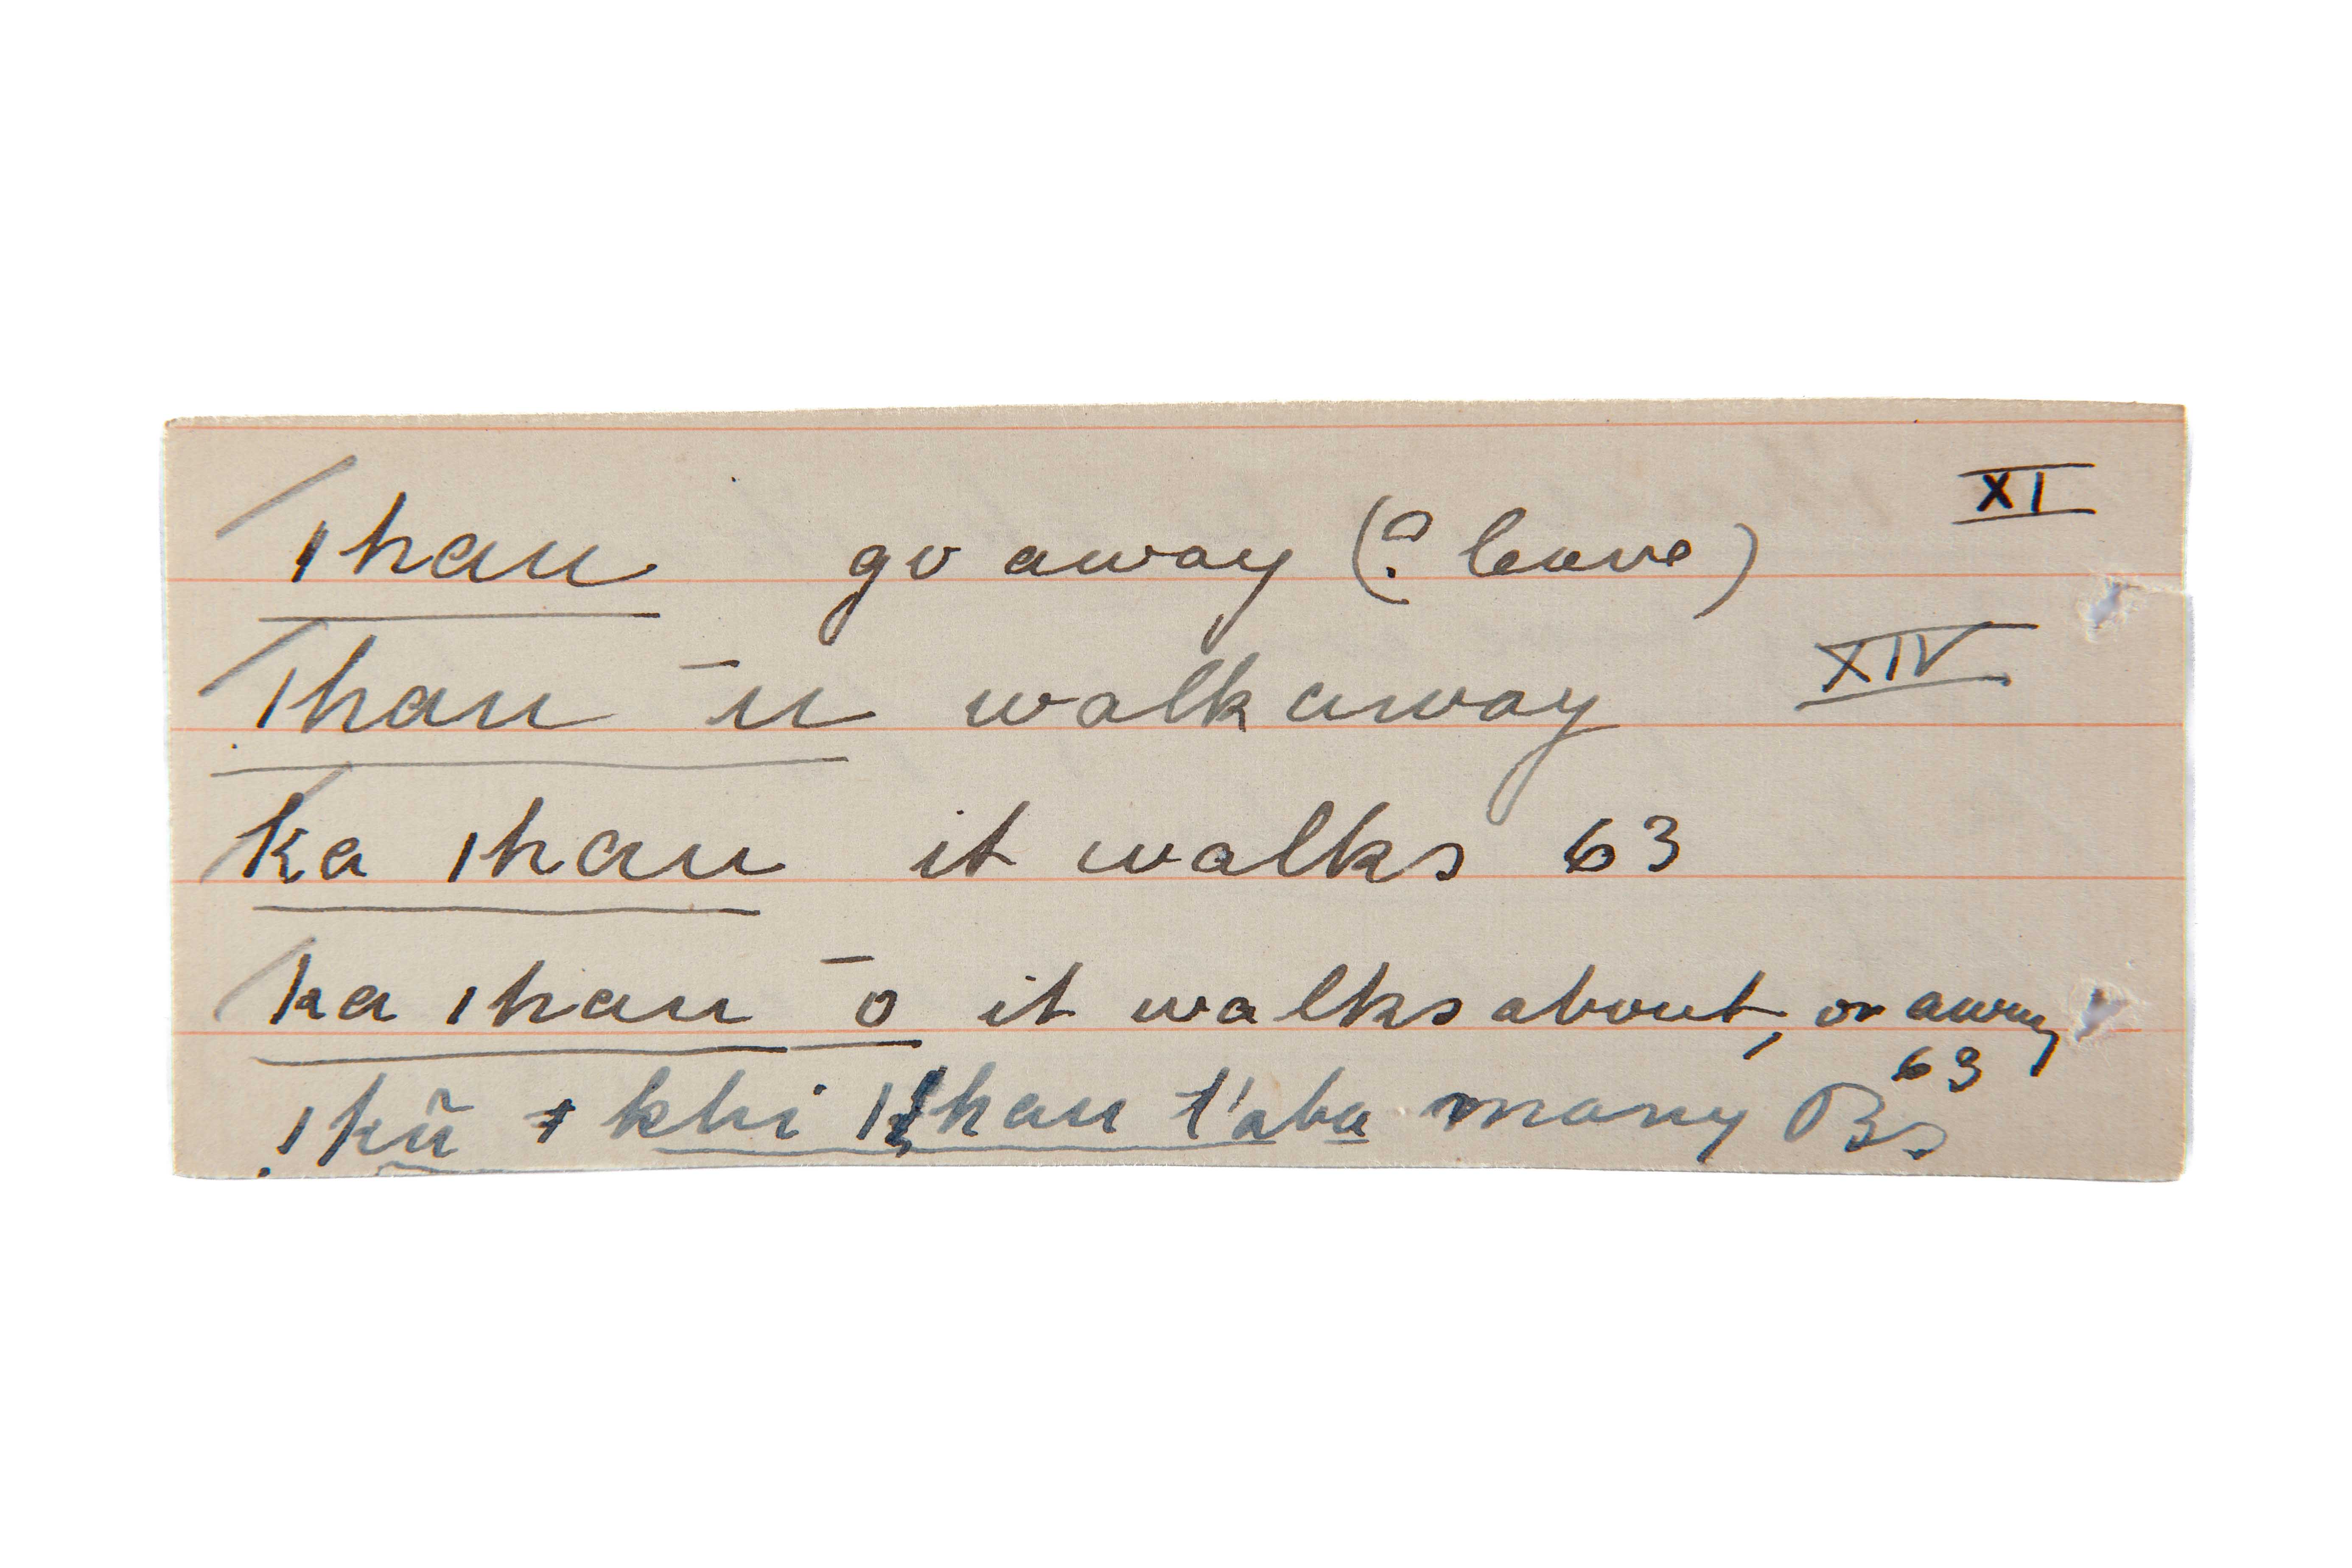 ǀhau go away (? leave) XI
ǀhau ū walk away XIV
ka ǀhau it walks 63
ka ǀhau ō it walks about, or away 63
!kũ ǂkhi ǀhau t'aba many Bs